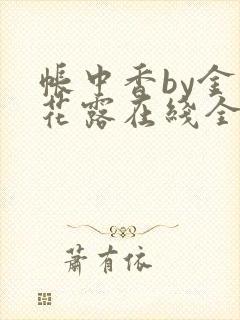 帐中香by金
花露在线全
萧有依